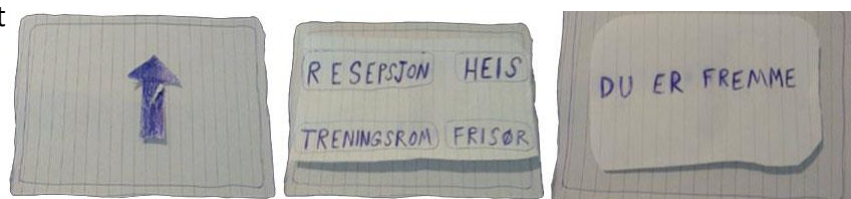 t
RESEPSJON HEIS
TRENINGSROM FRISØR
DU ER FREMME